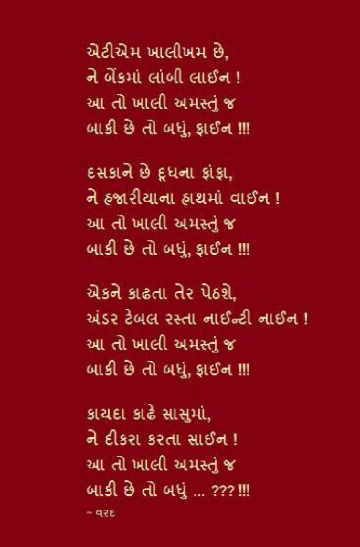 એટીએમ ખાલીખમ છે,
ને બેંકમાં લાંબી લાઈન !
આ તો ખાલી અમસ્તું જ
બાકી છે તો બધું, ફાઈન !!!
દસકાને છે દૂધના ફાંફા,
ને હજારીયાના હાથમાં વાઈન !
આ તો ખાલી અમસ્તું જ
બાકી છે તો બધું, ફાઈન !!!
એકને કાઢતા તેર પેઠશે,
અંડર ટેબલ રસ્તા નાઈન્ટી નાઈન !
આ તો ખાલી અમસ્તું જ
બાકી છે તો બધું, ફાઈન !!!
કાયદા કાઢે સાસુમાં,
ને દીકરા કરતા સાઈન !
આ તો ખાલી અમસ્તું જ
બાકી છે તો બધું ... ???!!!
~ વરદ